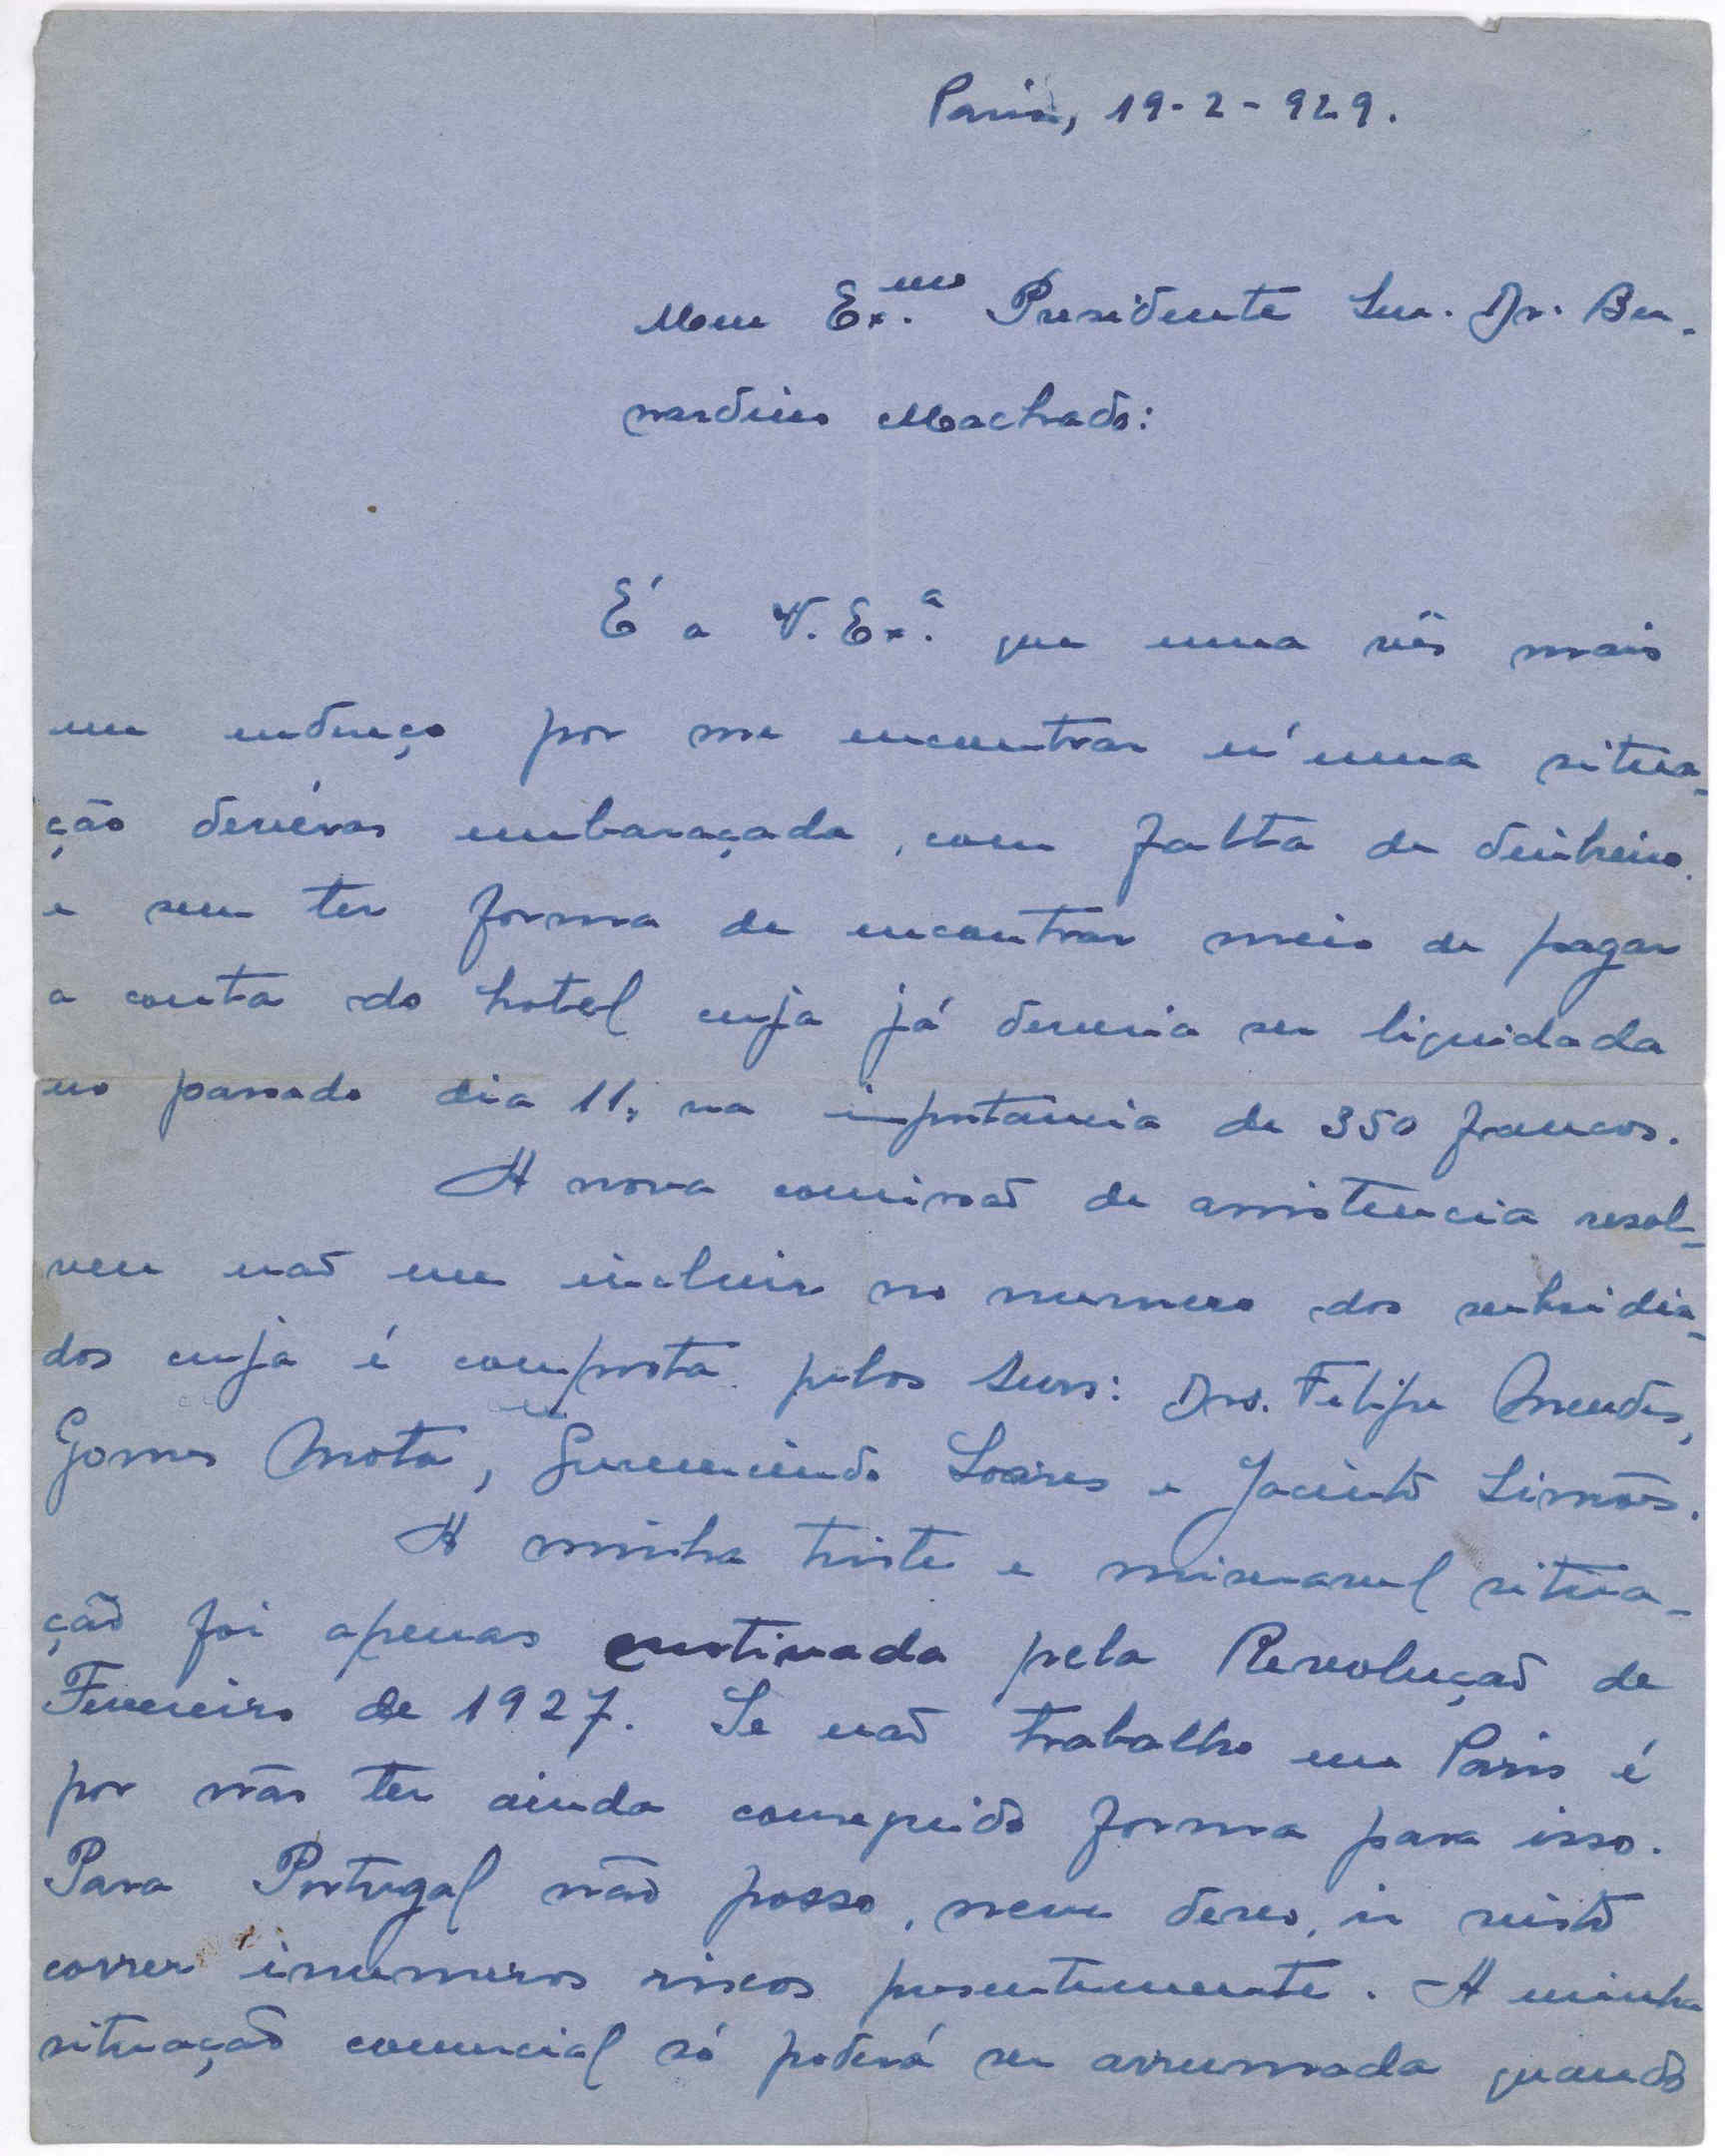 Paris, 19-2-929.
Meu Ex.mo Presidente Snr. Dr. Ber-
nardino Machado:
É a V. Ex.a que uma vês mais
me endereço por me encontrar n'uma situa-
ção devéras embaraçada, com falta de dinheiro
e sem ter forma de encontrar meio de pagar
a conta do hotel cuja já deveria ser liquidada
no passado dia 11, na importancia de 350 francos.
A nova comissão de assistencia resol-
veu não me incluir no numero dos subsidia-
dos cuja é composta pelos Snrs: Drs. Felipe Mendes,
Gomes Mota, Gumercindo Soares e Jacinto Simões.
A minha triste e miseravel situa-
ção foi apenas motivada pela Revolução de
Fevereiro de 1927. Se não trabalho em Paris é
por não ter ainda conseguido forma para isso.
Para Portugal não posso, nem devo, ir visto
correr inumeros riscos presentemente. A minha
situação comercial só poderá ser arrumada quando